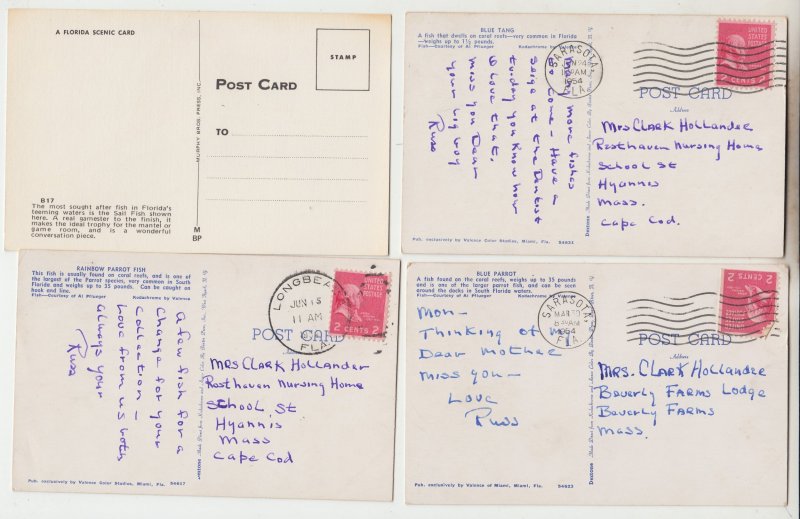 A FLORIDA SCENIC CARD
STAMP
POST CARD
TO
MURPHY BROS. PRESS, INC.
817
The most sought after fish in Florida's
teeming waters is the Sail Fish shown
here. A real gamester to the finish, it
makes the ideal trophy for the mantel or
game room, and is a wonderful
conversation piece.
M
BP
BLUE TANG
A fish that dwells on coral reefs—very common in Florida
—weighs up to 1½ pounds.
Fish—Courtesy of Al Pflueger Kodachrome by Valence
SARASOTA
JUN 24
AM
1954
FLA.
UNITED
STATES
POSTAGE
2 CENTS 2
POST CARD
Address
more fishes
to come – Have a
at the Dentist
today you know how
I love that.
miss you Dear
your big boy
Russ
Mrs Clark Hollander
Resthaven Nursing Home
School St
Hyannis
Mass.
Cape Cod.
Pub. exclusively by Valence Color Studios, Miami, Fla. S4631
RAINBOW PARROT FISH
This fish is usually found on coral reefs, and is one of
the largest of the Parrot species, very common in South
Florida and weighs up to 35 pounds. Can be caught on
hook and line.
Fish—Courtesy of Al Pflueger Kodachrome by Valence
LONGBEA
JUN 15
11 AM
FLA.
UNITED
STATES
POSTAGE
2 CENTS 2
POST CARD
A few fish for a
Change for your
Collection –
Love from us both
Always your
Russ
Mrs Clark Hollander
Resthaven Nursing Home
School St
Hyannis
Mass
Cape Cod
Pub. exclusively by Valence Color Studios, Miami, Fla. S4617
BLUE PARROT
A fish found on the coral reefs, weighs up to 35 pounds
and is one of the Parrot species. Can be seen
around the docks in South Florida waters.
Fish—Courtesy of Al Pflueger Kodachrome by Valence
SARASOTA
MAR 30
AM
1954
FLA.
2 CENTS 2
POST CARD
Address
Mom–
Thinking of my
Dear Mother
miss you–
Love
Russ
Mrs. Clark Hollander
Beverly Farms Lodge
Beverly Farms
Mass.
Pub. exclusively by Valence of Miami, Miami, Fla. S4623